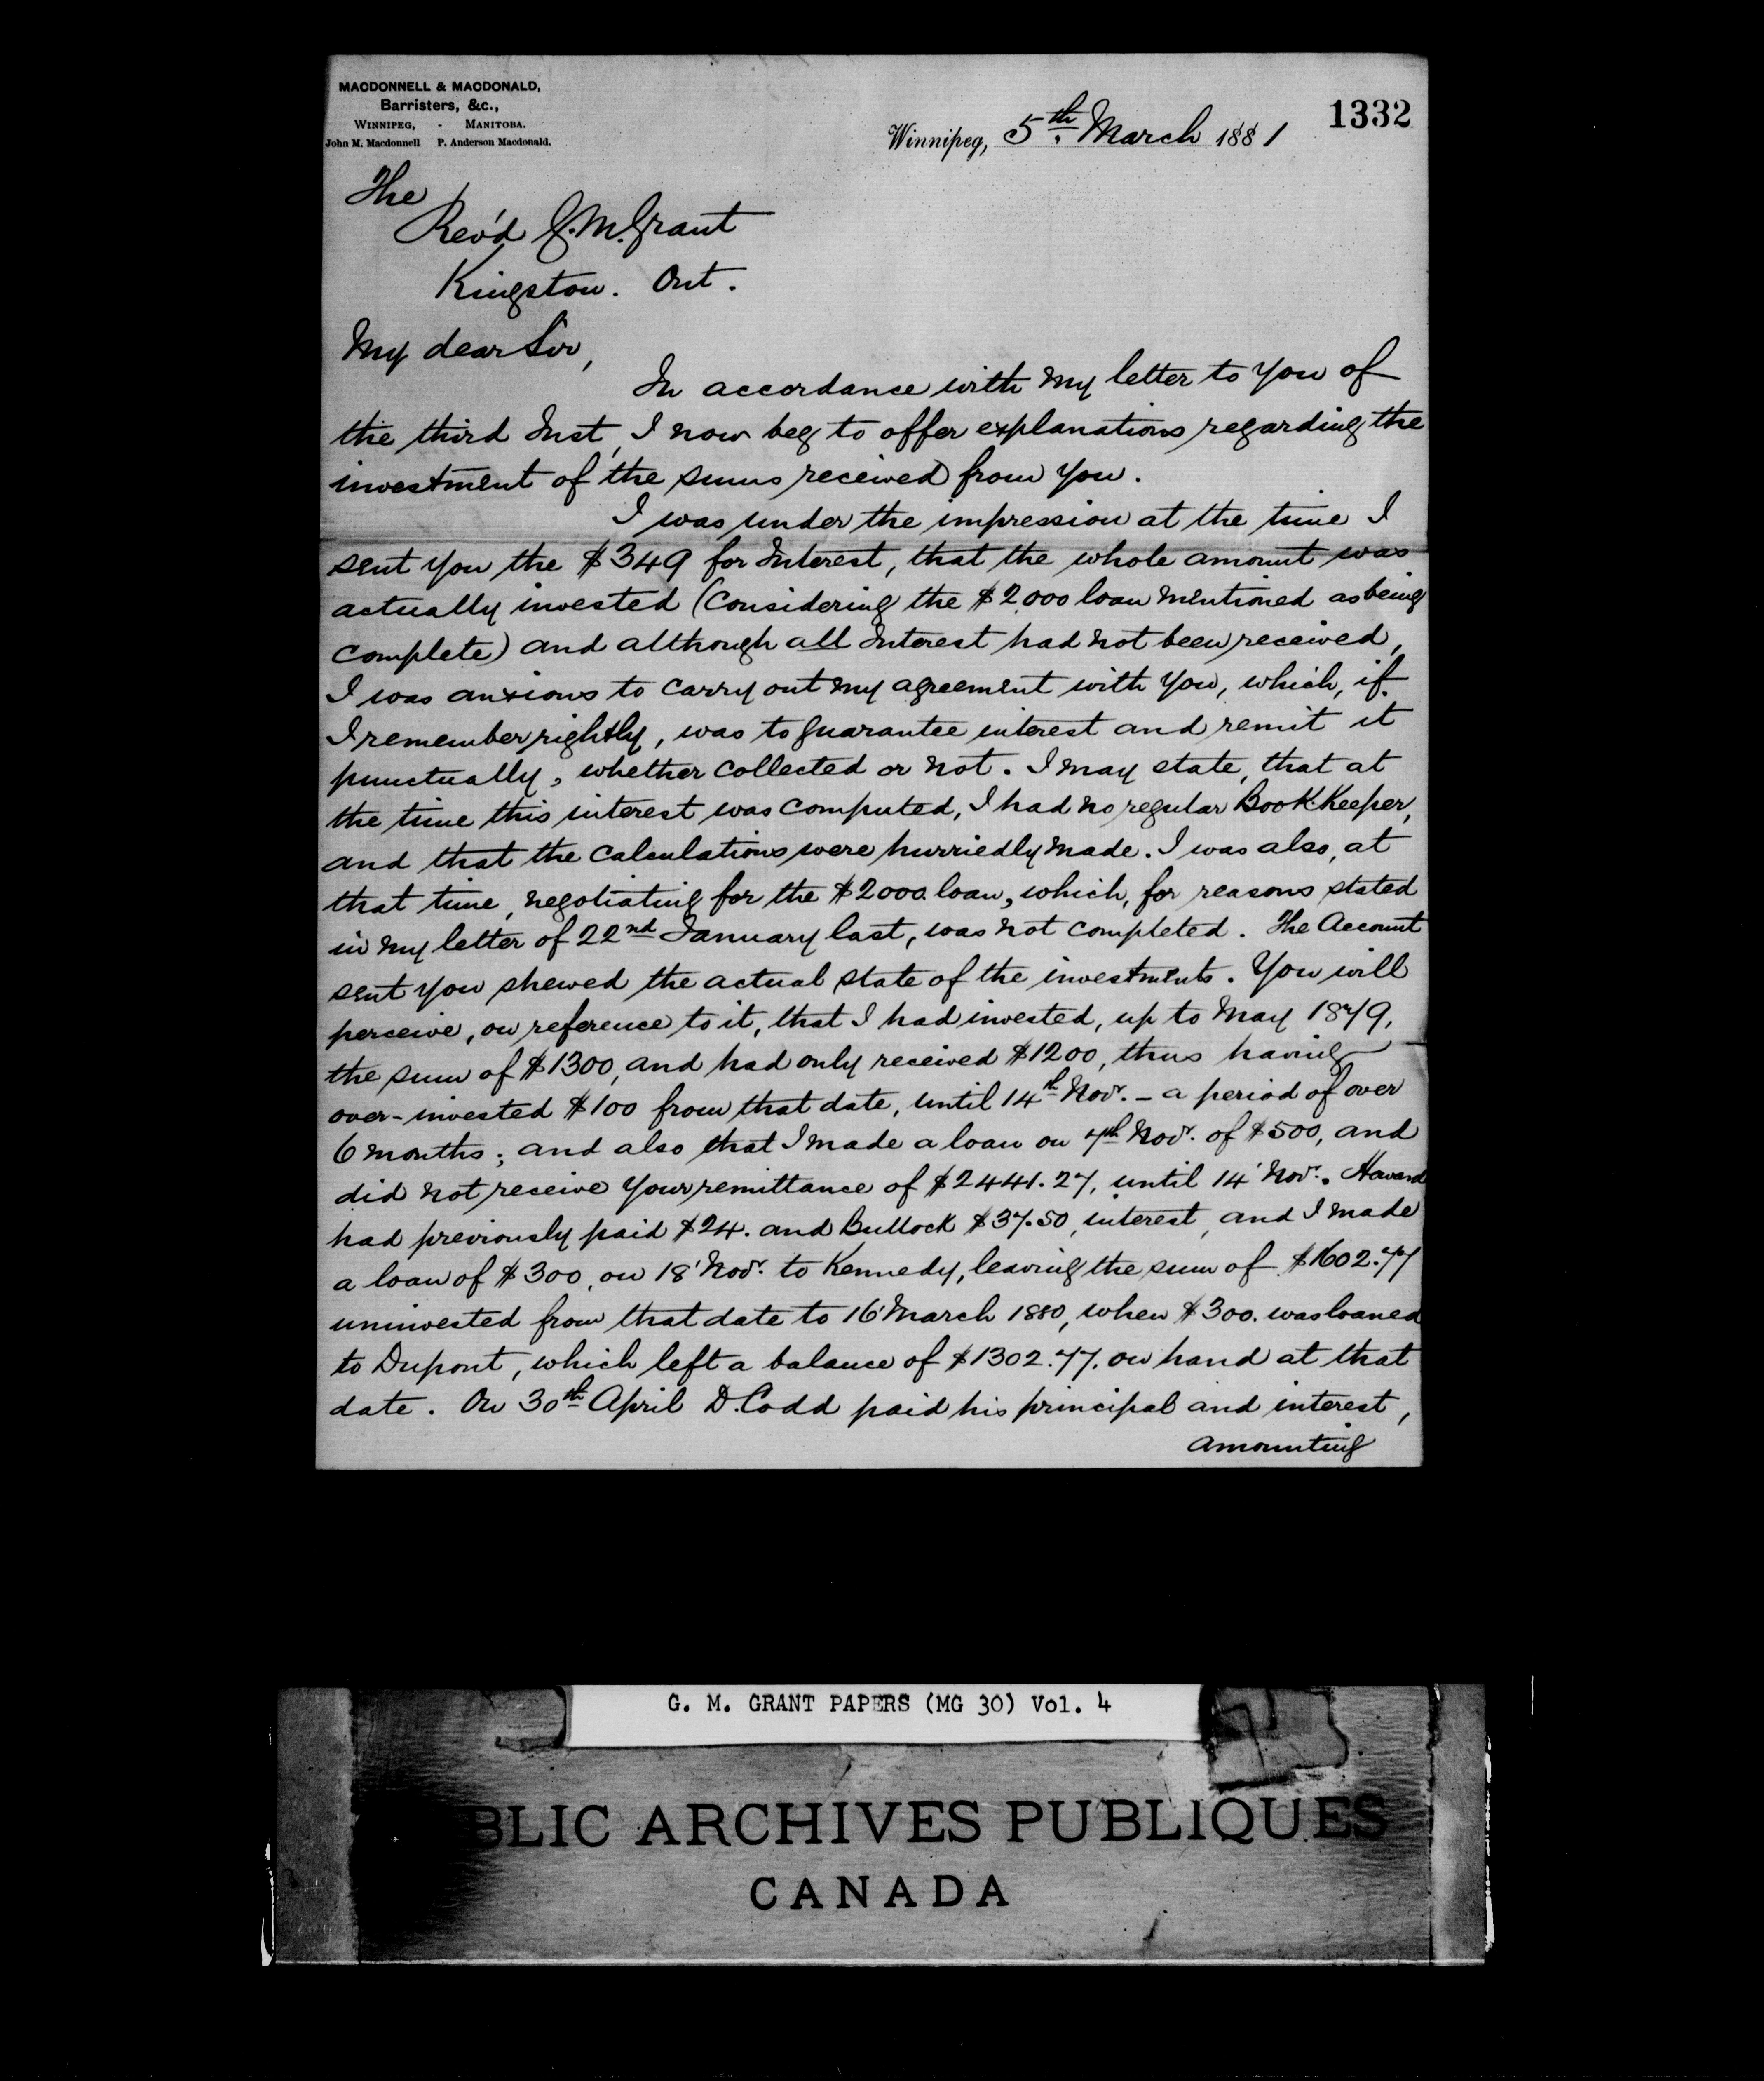 MACDONNELL & MACDONALD,
Barristers, &c.,
WINNIPEG, - MANITOBA.
John M. Macdonnell P. Anderson Macdonald.
1332
Winnipeg, 5th March 1881
The
Rev'd G.M. Grant
Kingston. Ont.
My dear Sir,
In accordance with my letter to you of
the third Inst, I now beg to offer explanations regarding the
investment of the sums received from you.
I was under the impression at the time I
sent you the $349 for Interest, that the whole amount was
actually invested (Considering the $2,000 loan mentioned as being
complete) and although all Interest had not been received,
I was anxious to carry out my agreement with you, which, if
I remember rightly, was to guarantee interest and remit it
punctually, whether collected or not. I may state, that at
the time this interest was computed, I had no regular Book-Keeper,
and that the calculations were hurriedly made. I was also, at
that time, negotiating for the $2000. loan, which, for reasons stated
in my letter of 22nd January last, was not completed. The Account
sent you shewed the actual state of the investments. You will
perceive, on reference to it, that I had invested, up to May 1879,
the sum of $1300, and had only received $1200, thus having
over-invested $100 from that date, until 14th Novr. - a period of over
6 months; and also that I made a loan on 7th Novr. of $500, and
did not receive your remittance of $2441.27, until 14' Novr. Havard
had previously paid $24. and Bullock $37.50, interest, and I made
a loan of $300, on 18' Novr. to Kennedy, leaving the sum of $1602.77
uninvested from that date to 16' March 1880, when $300. was loaned
to Dupont, which left a balance of $1302.77. on hand at that
date. On 30th April D. Codd paid his principal and interest,
amounting
G. M. GRANT PAPERS (MG 30) Vol. 4
BLIC ARCHIVES PUBLIQUES
CANADA